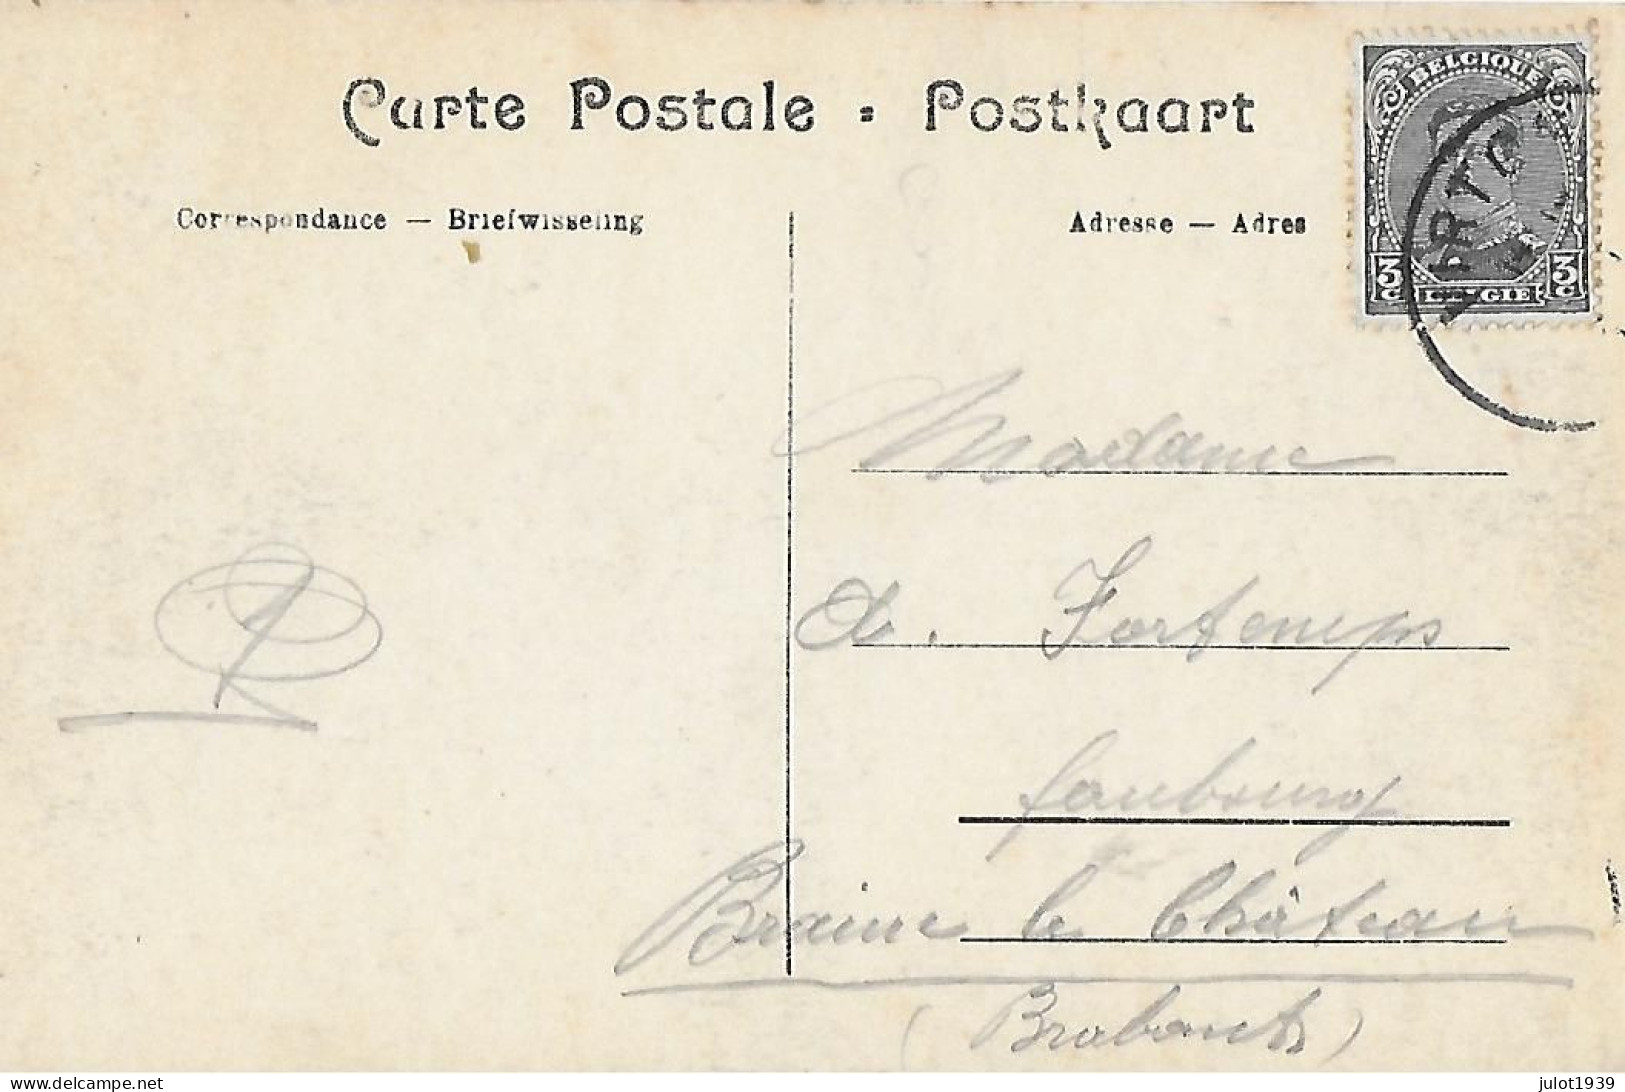 Carte Postale - Postkaart
Correspondance — Briefwisseling
Adresse — Adres
BELGIQUE
3 C 3 C
BELGIE
VIRTON
Madame
A. Fortemps
faubourg
Braine le Château
(Brabant)
delcampe.net
julot1939